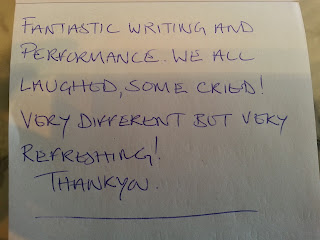 FANTASTIC WRITING AND
PERFORMANCE. WE ALL
LAUGHED, SOME CRIED!
VERY DIFFERENT BUT VERY
REFRESHING!
THANKYOU.